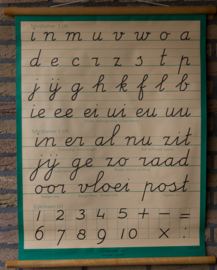 i n m u v w o a
d e c r z s t p
j ij g h k f l b
ie ee ei ui eu uu
in er al nu zit
jij ge zo raad
oor vloei post
1 2 3 4 5 + - =
6 7 8 9 10 × :